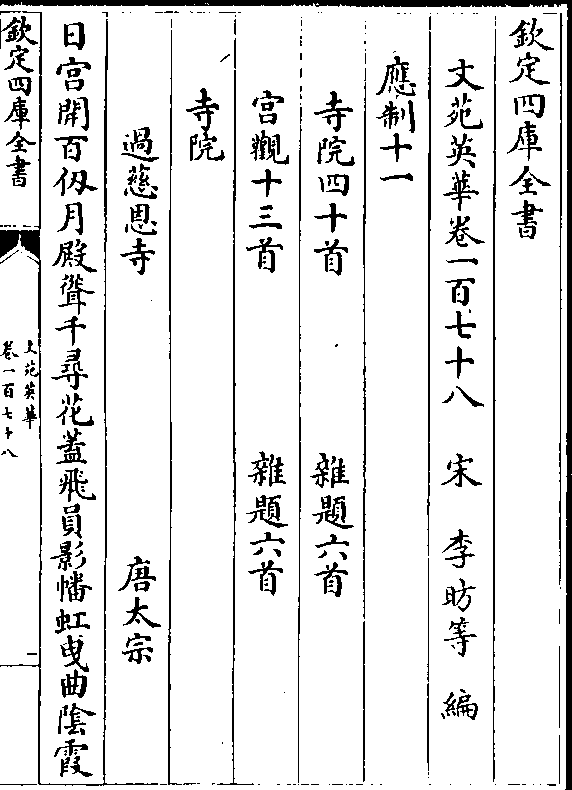 欽定四庫全書
文苑英華卷一百七十八 宋 李昉等 編
應制十一
寺院四十首 雜題六首
宮觀十三首 雜題六首
寺院
過慈恩寺 唐太宗
日宮開百仭月殿聳千尋花蓋飛員影幡虹曵曲陰霞
欽定四庫全書
文苑英華
卷一百七十八
一